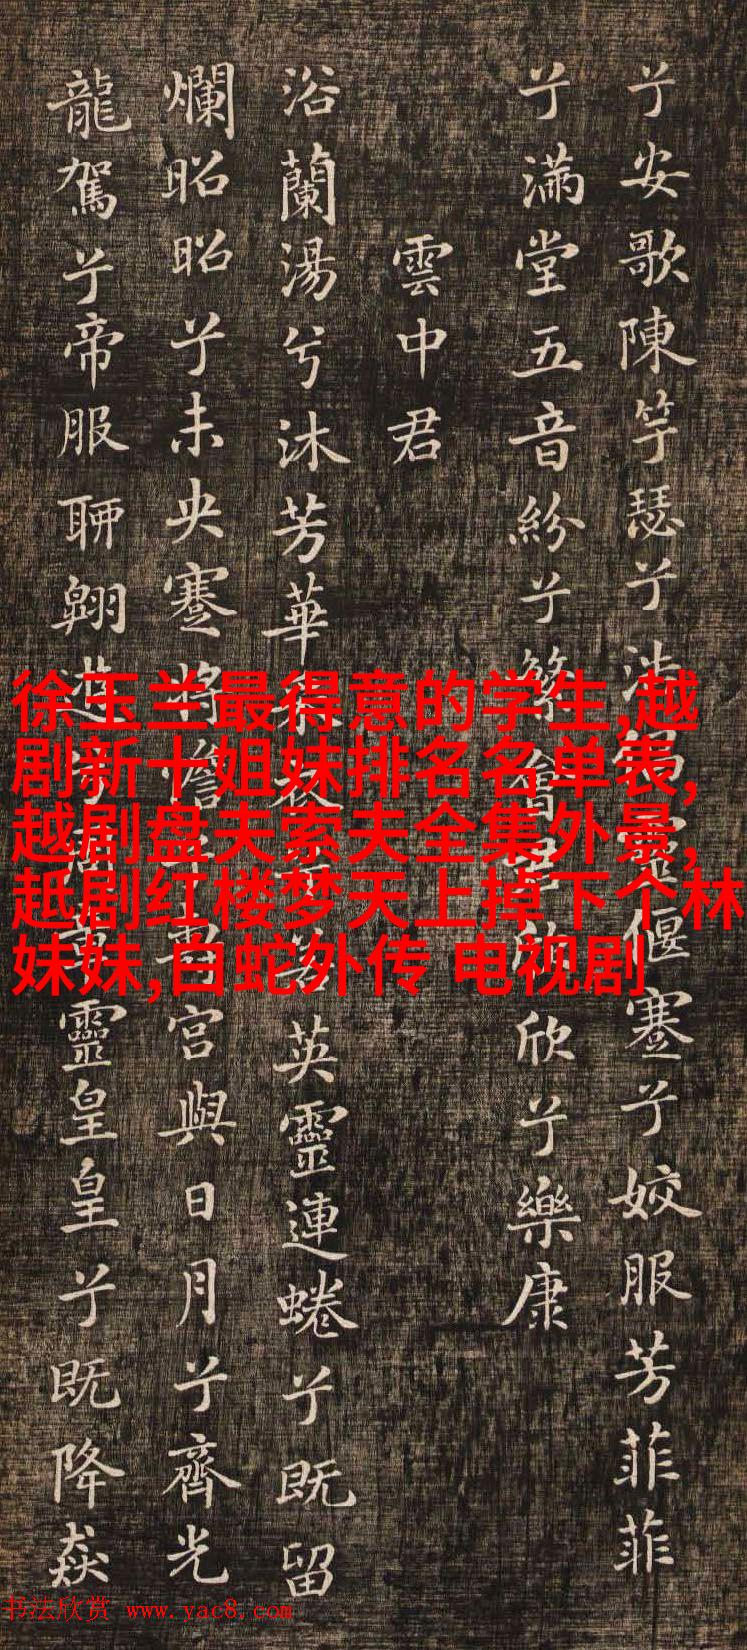 兮安歌陳竽瑟兮浩倡靈偃蹇兮姣服芳菲菲
兮滿堂五音紛兮繁會君欣欣兮樂康
雲中君
浴蘭湯兮沐芳華采衣兮若英靈連蜷兮既留
爛昭昭兮未央蹇將憺兮壽宮與日月兮齊光
龍駕兮帝服聊翱遊兮周章靈皇皇兮既降猋
徐玉兰最得意的学生,越
剧新十姐妹排名名单表,
越剧盘夫索夫全集外景,
越剧红楼梦天上掉下个林
妹妹,白蛇外传 电视剧
书法欣赏 www.yac8.com